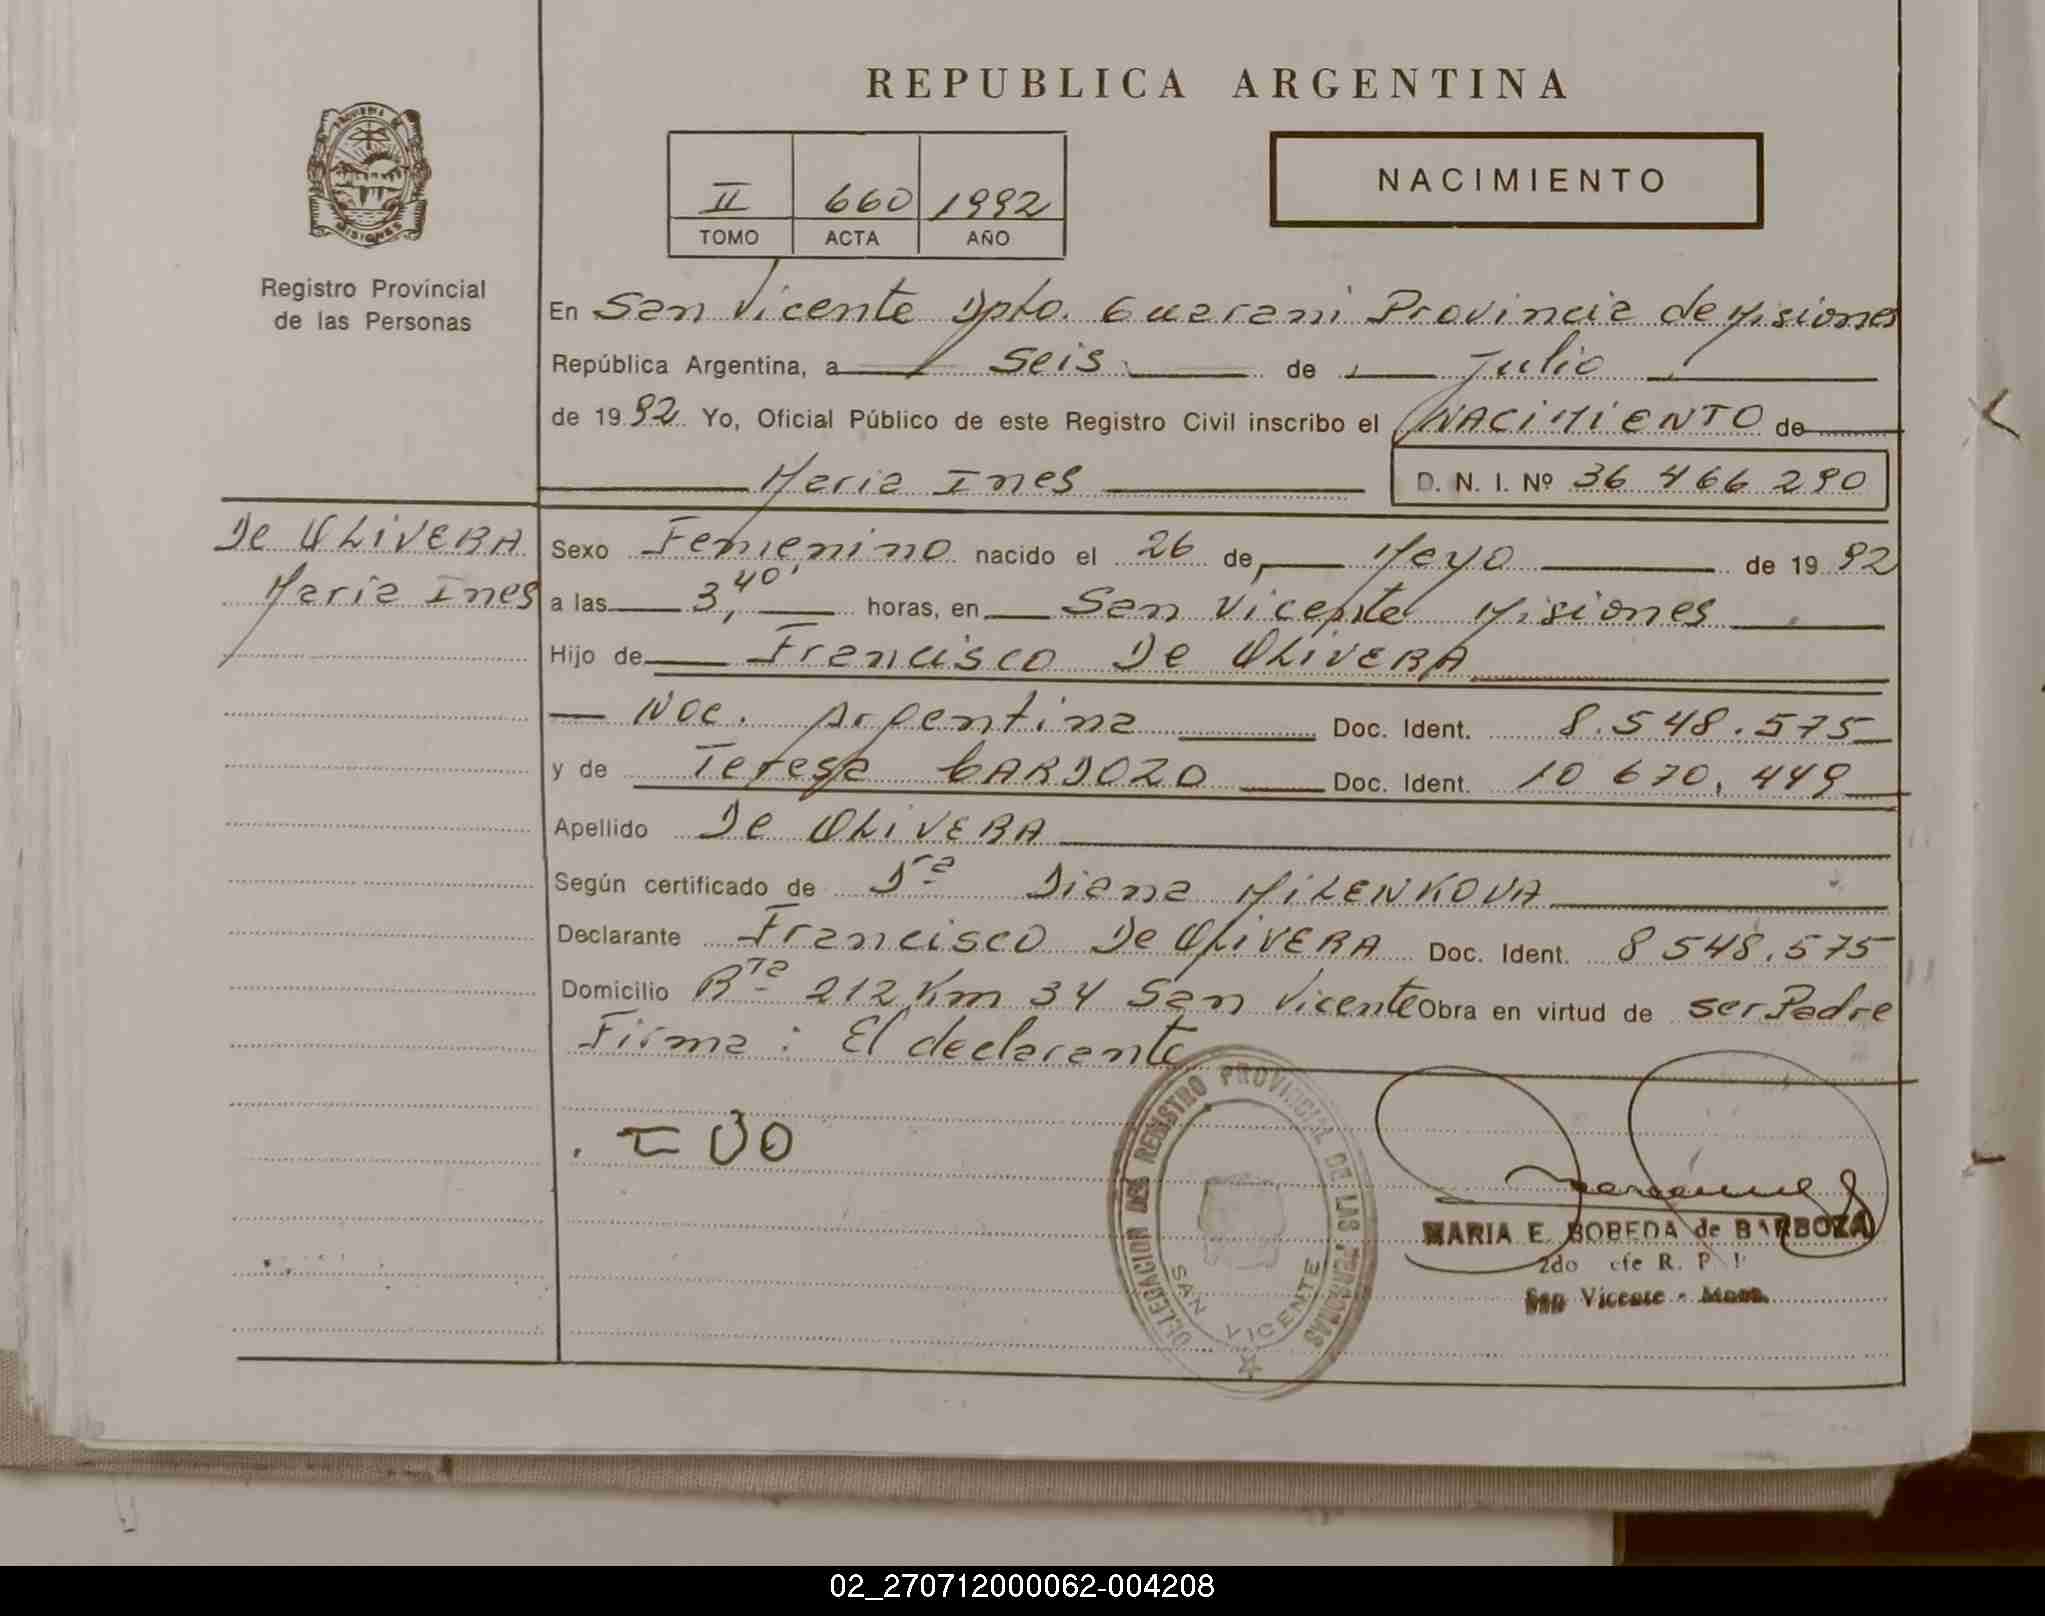 REPUBLICA ARGENTINA
II 660 1992
TOMO ACTA AÑO
NACIMIENTO
PROVINCIA DE
MISIONES
Registro Provincial
de las Personas
De OLIVERA
Maria Ines
En San Vicente Dpto. Guarani Provincia de Misiones
República Argentina, a seis de Julio
de 1992 Yo, Oficial Público de este Registro Civil inscribo el NACIMIENTO de
Maria Ines D. N. I. Nº 36 466 290
Sexo Femenino nacido el 26 de Mayo de 1992
a las 3,40' horas, en San Vicente Misiones
Hijo de Francisco De OLIVERA
Nac. Argentina Doc. Ident. 8.548.575
y de Teresa CARDOZO Doc. Ident. 10 670.449
Apellido De OLIVERA
Según certificado de Dra Diana MILENKOVA
Declarante Francisco De OLIVERA Doc. Ident. 8 548.575
Domicilio Rta 212 Km 34 San Vicente Obra en virtud de ser Padre
Firma: El declarante
DELEGACION DEL REGISTRO PROVINCIAL DE LAS PERSONAS
SAN VICENTE
MARIA E. BOBEDA de BARBOZA
2do R. P.
San Vicente - Mnes.
02_270712000062-004208